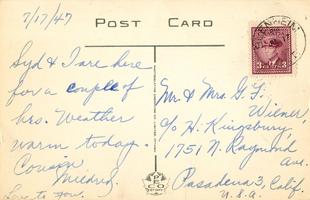 7/17/47
POST CARD
Syd & I are here
for a couple of
hrs. Weather
warm today.
Cousin
Mildred.
Love to you.
ENHEIM
3 3
Mr. & Mrs. G. F.
Wilner,
c/o H. Kingsbury,
1751 N. Raymond
Ave.
Pasadena 3, Calif.
U.S.A.
PECO